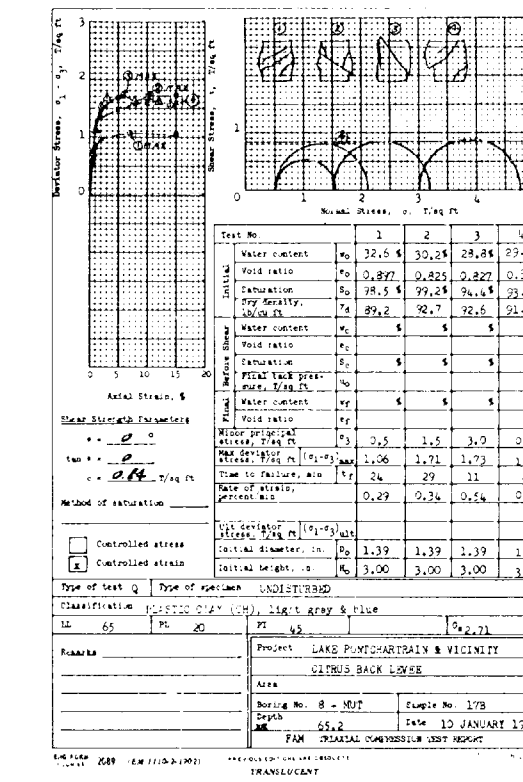 Deviator Stress, σ₁ - σ₃, T/sq ft
3
2
1
0
① MAX
② MAX
Shear Stress, τ, T/sq ft
1
0
① ② ③ ④
0 1 2 3 4
Normal Stress, σ, T/sq ft
0 5 10 15 20
Axial Strain, %
Shear Strength Parameters
φ = 0 °
tan φ = 0
c = 0.84 T/sq ft
Method of saturation
Controlled stress
x Controlled strain
Test No. 1 2 3
Initial
Water content w₀ 32.6 % 30.2 % 28.8 % 29.
Void ratio e₀ 0.897 0.825 0.827
Saturation S₀ 98.5 % 99.2 % 94.4 % 93.
Dry density, lb/cu ft γd 89.2 92.7 92.6 91.
Before Shear
Water content wc % % %
Void ratio ec
Saturation Sc % % %
Final back pressure, T/sq ft u₀
Final
Water content wf % % %
Void ratio ef
Minor principal stress, T/sq ft σ₃ 0.5 1.5 3.0
Max deviator stress, T/sq ft (σ₁-σ₃)max 1.06 1.71 1.73
Time to failure, min tf 24 29 11
Rate of strain, percent/min 0.29 0.34 0.54
Ult deviator stress, T/sq ft (σ₁-σ₃)ult
Initial diameter, in. D₀ 1.39 1.39 1.39
Initial height, in. H₀ 3.00 3.00 3.00
Type of test Q Type of specimen UNDISTURBED
Classification PLASTIC CLAY (CH), light gray & blue
LL 65 PL 20 PI 45 Gs 2.71
Remarks
Project LAKE PONTCHARTRAIN & VICINITY
CITRUS BACK LEVEE
Area
Boring No. 8 - MUT Sample No. 17B
Depth 65.2 Date 10 JANUARY
TRIAXIAL COMPRESSION TEST REPORT
ENG FORM 2089 (EM 1110-2-1902) PREVIOUS EDITIONS ARE OBSOLETE
TRANSLUCENT